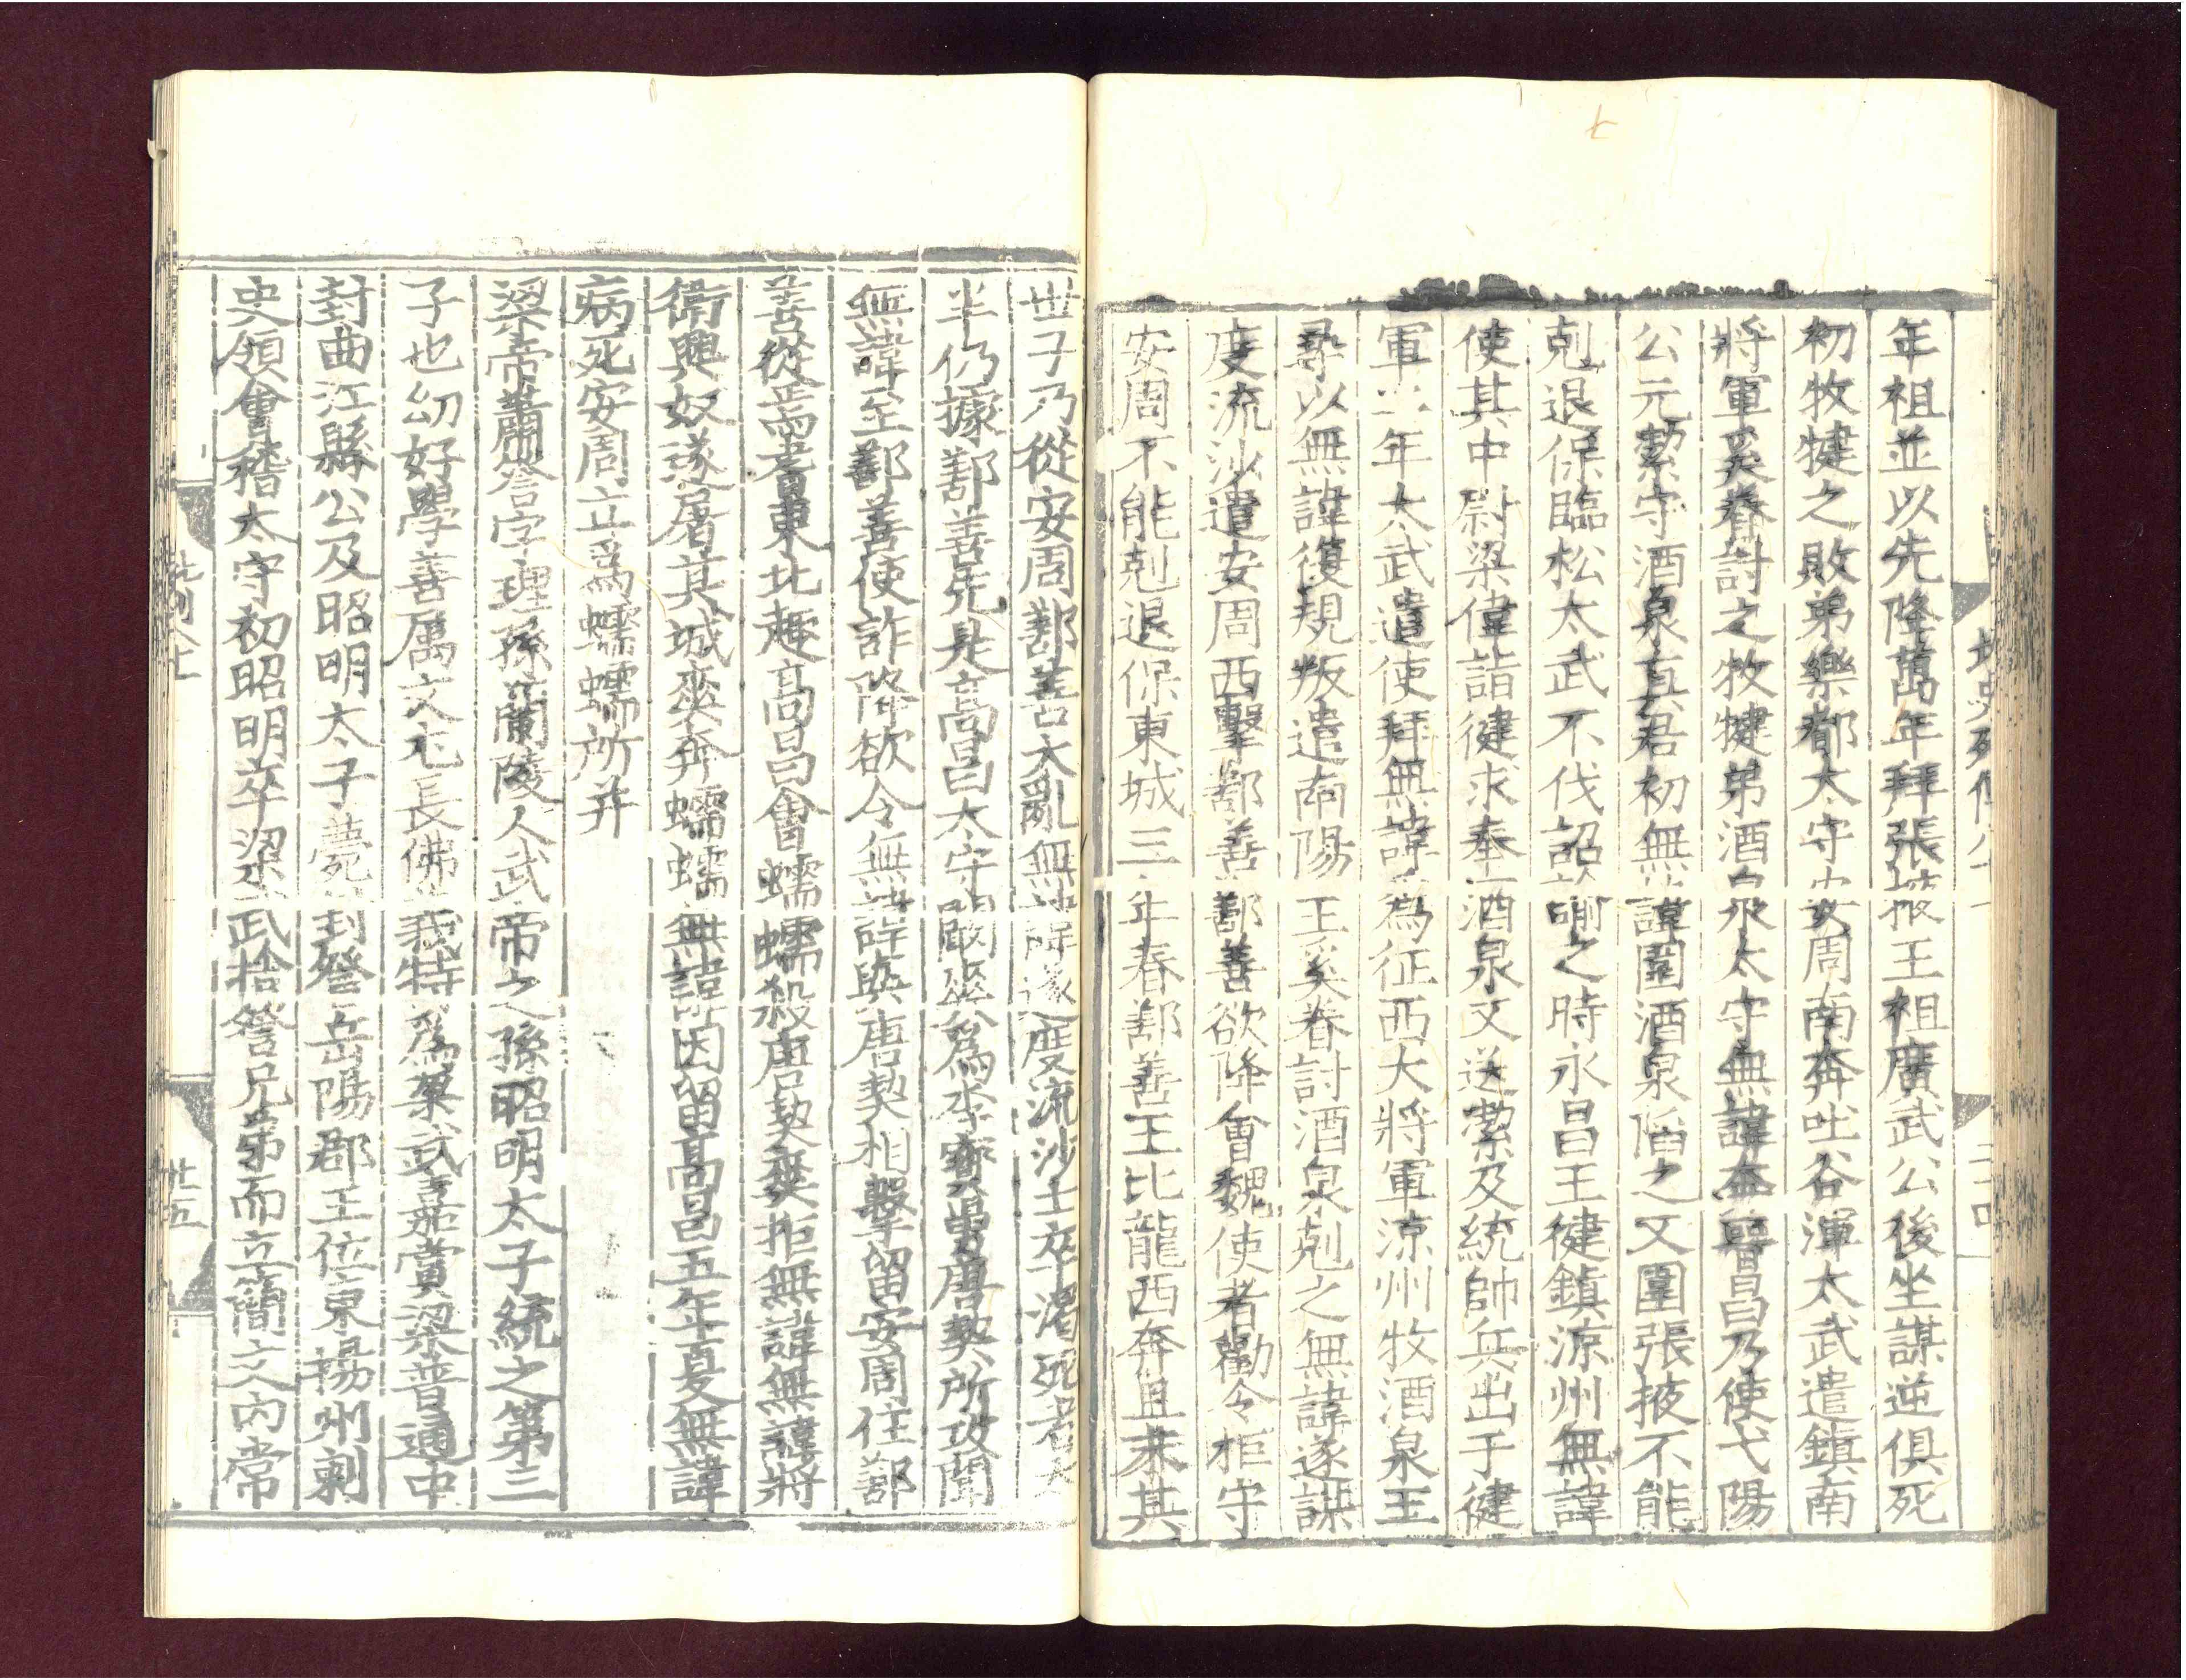 年祖並以先降萬年拜張掖王祖廣武公後坐謀逆俱死
初牧犍之敗弟樂都太守安周南奔吐谷渾太武遣鎮南
將軍奚眷討之牧犍弟酒泉太守無諱奔晉昌乃使弋陽
公元絜守酒泉真君初無諱圍酒泉陷之又圍張掖不能
剋退保臨松太武不伐詔諭之時永昌王健鎮涼州無諱
使其中尉梁偉詣健求奉酒泉又送絜及統帥兵出于健
軍二年太武遣使拜無諱為征西大將軍涼州牧酒泉王
尋以無諱復規叛遣南陽王奚眷討酒泉剋之無諱遂謀
度流沙遣安周西擊鄯善鄯善欲降會魏使者勸令拒守
安周不能剋退保東城三年春鄯善王比龍西奔且末其
世子乃從安周鄯善大亂無諱遂度流沙士卒渴死者大
半仍據鄯善先是高昌太守闞爽為李寶舅唐契所攻聞
無諱至鄯善使詐降欲令無諱與唐契相擊留安周住鄯
善從焉耆東北趣高昌會蠕蠕殺唐契爽拒無諱無諱將
衛興奴遂屠其城爽奔蠕蠕無諱因留高昌五年夏無諱
病死安周立爲蠕蠕所并
梁帝蕭詧字理孫蘭陵人武帝之孫昭明太子統之第三
子也幼好學善屬文尤長佛義特爲梁武嘉賞梁普通中
封曲江縣公及昭明太子薨封詧岳陽郡王位東揚州刺
史領會稽太守初昭明卒梁武捨詧兄弟而立簡文內常
廿五